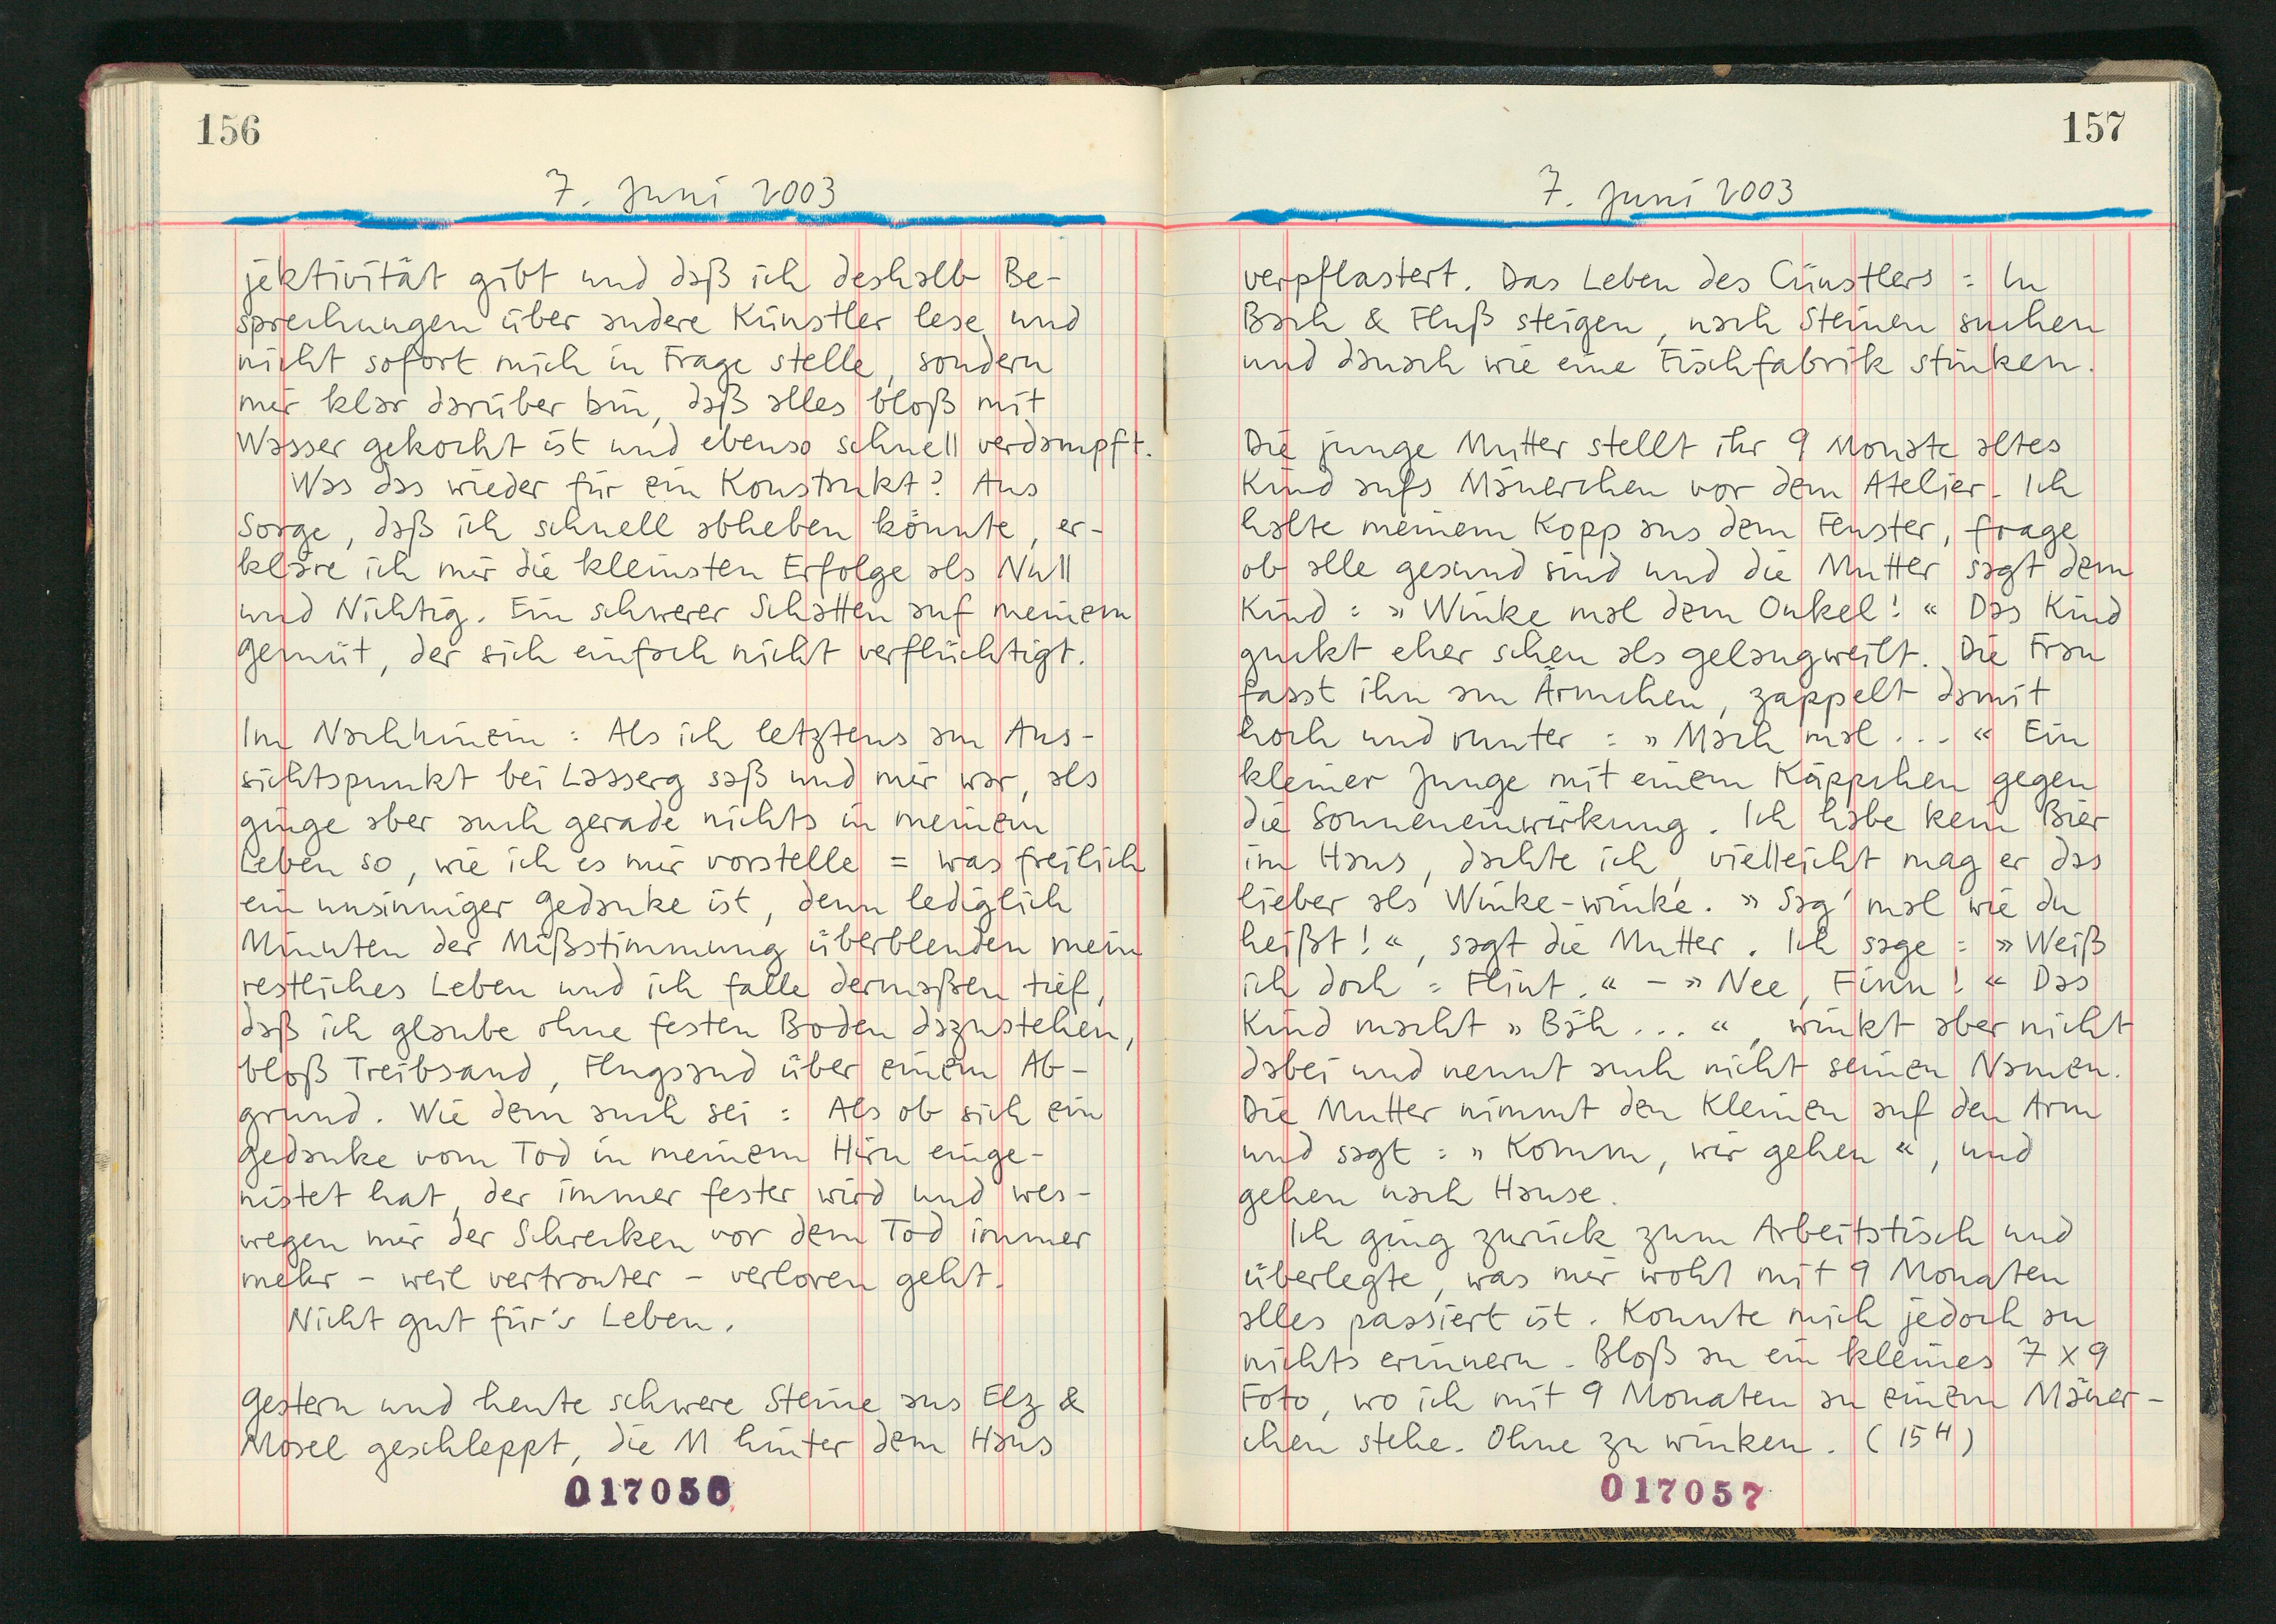 156
7. Juni 2003
jektivität gibt und daß ich deshalb Be-
sprechungen über andere Künstler lese und
nicht sofort mich in Frage stelle, sondern
mir klar darüber bin, daß alles bloß mit
Wasser gekocht ist und ebenso schnell verdampft.
Was das wieder für ein Konstrukt? Aus
Sorge, daß ich schnell abheben könnte, er-
kläre ich mir die kleinsten Erfolge als Null
und Nichtig. Ein schwerer Schatten auf meinem
Gemüt, der sich einfach nicht verflüchtigt.
Im Nachhinein: Als ich letztens am Aus-
sichtspunkt bei Lasserg saß und mir war, als
ginge aber auch gerade nichts in meinem
Leben so, wie ich es mir vorstelle = was freilich
ein unsinniger Gedanke ist, denn lediglich
Minuten der Mißstimmung überblenden mein
restliches Leben und ich falle dermaßen tief,
daß ich glaube ohne festen Boden dazustehen,
bloß Treibsand, Flugsand über einem Ab-
grund. Wie dem auch sei: Als ob sich ein
Gedanke vom Tod in meinem Hirn einge-
nistet hat, der immer fester wird und wes-
wegen mir der Schrecken vor dem Tod immer
mehr - weil vertrauter - verloren geht.
Nicht gut für's Leben.
Gestern und heute schwere Steine aus Elz &
Mosel geschleppt, die M hinter dem Haus
017056
157
7. Juni 2003
verpflastert. Das Leben des Cünstlers = In
Bach & Fluß steigen, nach Steinen suchen
und danach wie eine Fischfabrik stinken.
Die junge Mutter stellt ihr 9 Monate altes
Kind aufs Mäuerchen vor dem Atelier. Ich
halte meinem Kopp aus dem Fenster, frage
ob alle gesund sind und die Mutter sagt dem
Kind: » Winke mal dem Onkel! « Das Kind
guckt eher scheu als gelangweilt. Die Frau
fasst ihn am Ärmchen, zappelt damit
hoch und runter: » Mach mal ... « Ein
kleiner Junge mit einem Käppchen gegen
die Sonneneinwirkung. Ich habe kein Bier
im Haus, dachte ich, vielleicht mag er das
lieber als Winke-winke. » Sag' mal wie du
heißt! «, sagt die Mutter. Ich sage: » Weiß
ich doch: Flint. « - » Nee, Finn! « Das
Kind macht » Bäh... «, winkt aber nicht
dabei und nennt auch nicht seinen Namen.
Die Mutter nimmt den Kleinen auf den Arm
und sagt: » Komm, wir gehen «, und
gehen nach Hause.
Ich ging zurück zum Arbeitstisch und
überlegte, was mir wohl mit 9 Monaten
alles passiert ist. Konnte mich jedoch an
nichts erinnern. Bloß an ein kleines 7 x 9
Foto, wo ich mit 9 Monaten an einem Mäuer-
chen stehe. Ohne zu winken. (15 H)
017057